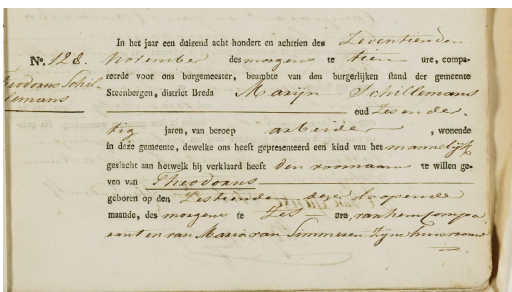 In het jaar een duizend acht honderd en achttien den Zeventienden
No. 128. november des morgens te tien ure, compa-
Theodorus Schil- reerde voor ons burgemeester, beambte van den burgerlijken stand der gemeente
lemans Steenbergen, district Breda Marijn Schillemans
oud zes en der-
tig jaren, van beroep arbeider, wonende
in deze gemeente, dewelke ons heeft gepresenteerd een kind van het mannelijk
geslacht aan hetwelk hij verklaard heeft den voornaam te willen ge-
ven van Theodorus
geboren op den Zestienden dezer loopende
maande, des morgens te Zes ure, van hem Compa-
rant en van Maria van Simmeren Zijne huisvrouw